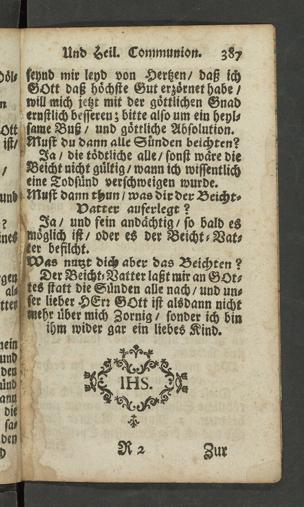 Und Heil. Communion. 387
seynd mir leyd von Hertzen / daß ich
GOtt daß höchste Gut erzörnet habe /
will mich jetzt mit der göttlichen Gnad
ernstlich besseren; bitte also um ein heyl-
same Buß / und göttliche Absolution.
Must du dann alle Sünden beichten?
Ja / die tödtliche alle / sonst wäre die
Beicht nicht gültig / wann ich wissentlich
eine Todsünd verschweigen wurde.
Must dann thun / was dir der Beicht-
Vatter auferlegt?
Ja / und sein andächtig / so bald es
möglich ist / oder es der Beicht-Vat-
ter befilcht.
Was nutzt dich aber das Beichten?
Der Beicht-Vatter laßt mir an GOt-
tes statt die Sünden alle nach / und un-
ser lieber HErr GOtt ist alsdann nicht
mehr über mich Zornig / sonder ich bin
ihm wider gar ein liebes Kind.
IHS.
R 2 Zur